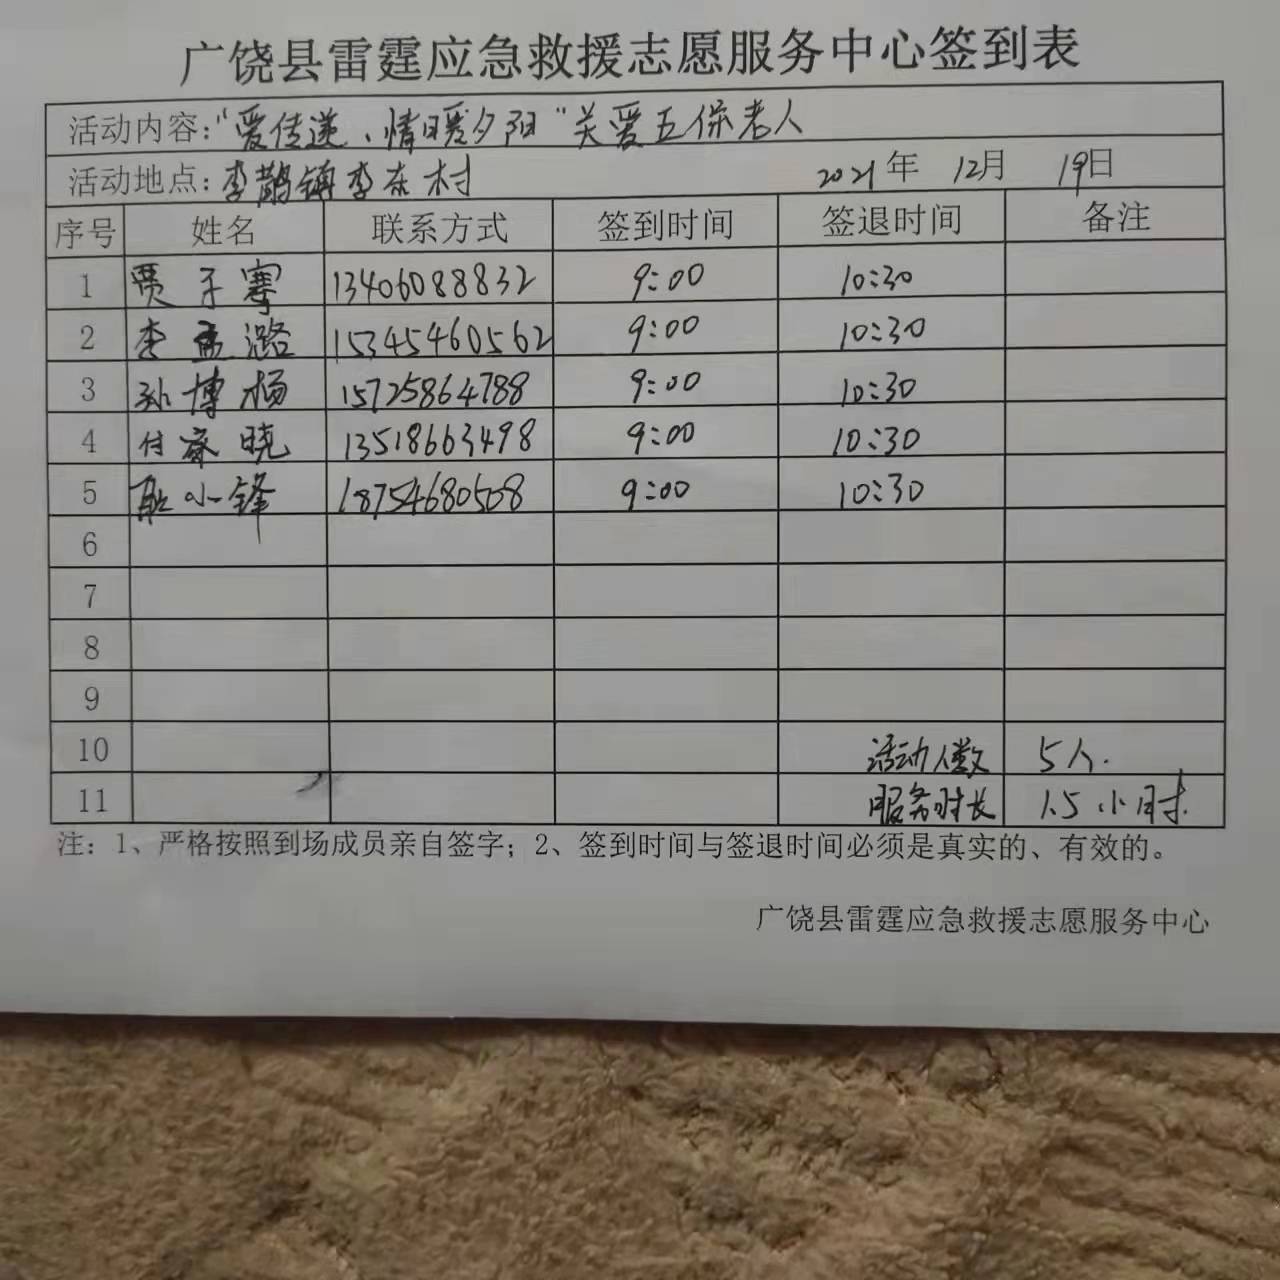 广饶县雷霆应急救援志愿服务中心签到表
活动内容：“爱传递、情暖夕阳”关爱五保老人
活动地点：李鹊镇李东村 2021年 12月 19日
序号 姓名 联系方式 签到时间 签退时间 备注
1 贾子骞 13406088832 9:00 10:30
2 李孟潞 15345460562 9:00 10:30
3 孙博杨 15725864788 9:00 10:30
4 付睿晓 13518663498 9:00 10:30
5 耿小锋 18754680508 9:00 10:30
6
7
8
9
10 活动人数 5人.
11 服务时长 1.5小时.
注：1、严格按照到场成员亲自签字；2、签到时间与签退时间必须是真实的、有效的。
广饶县雷霆应急救援志愿服务中心